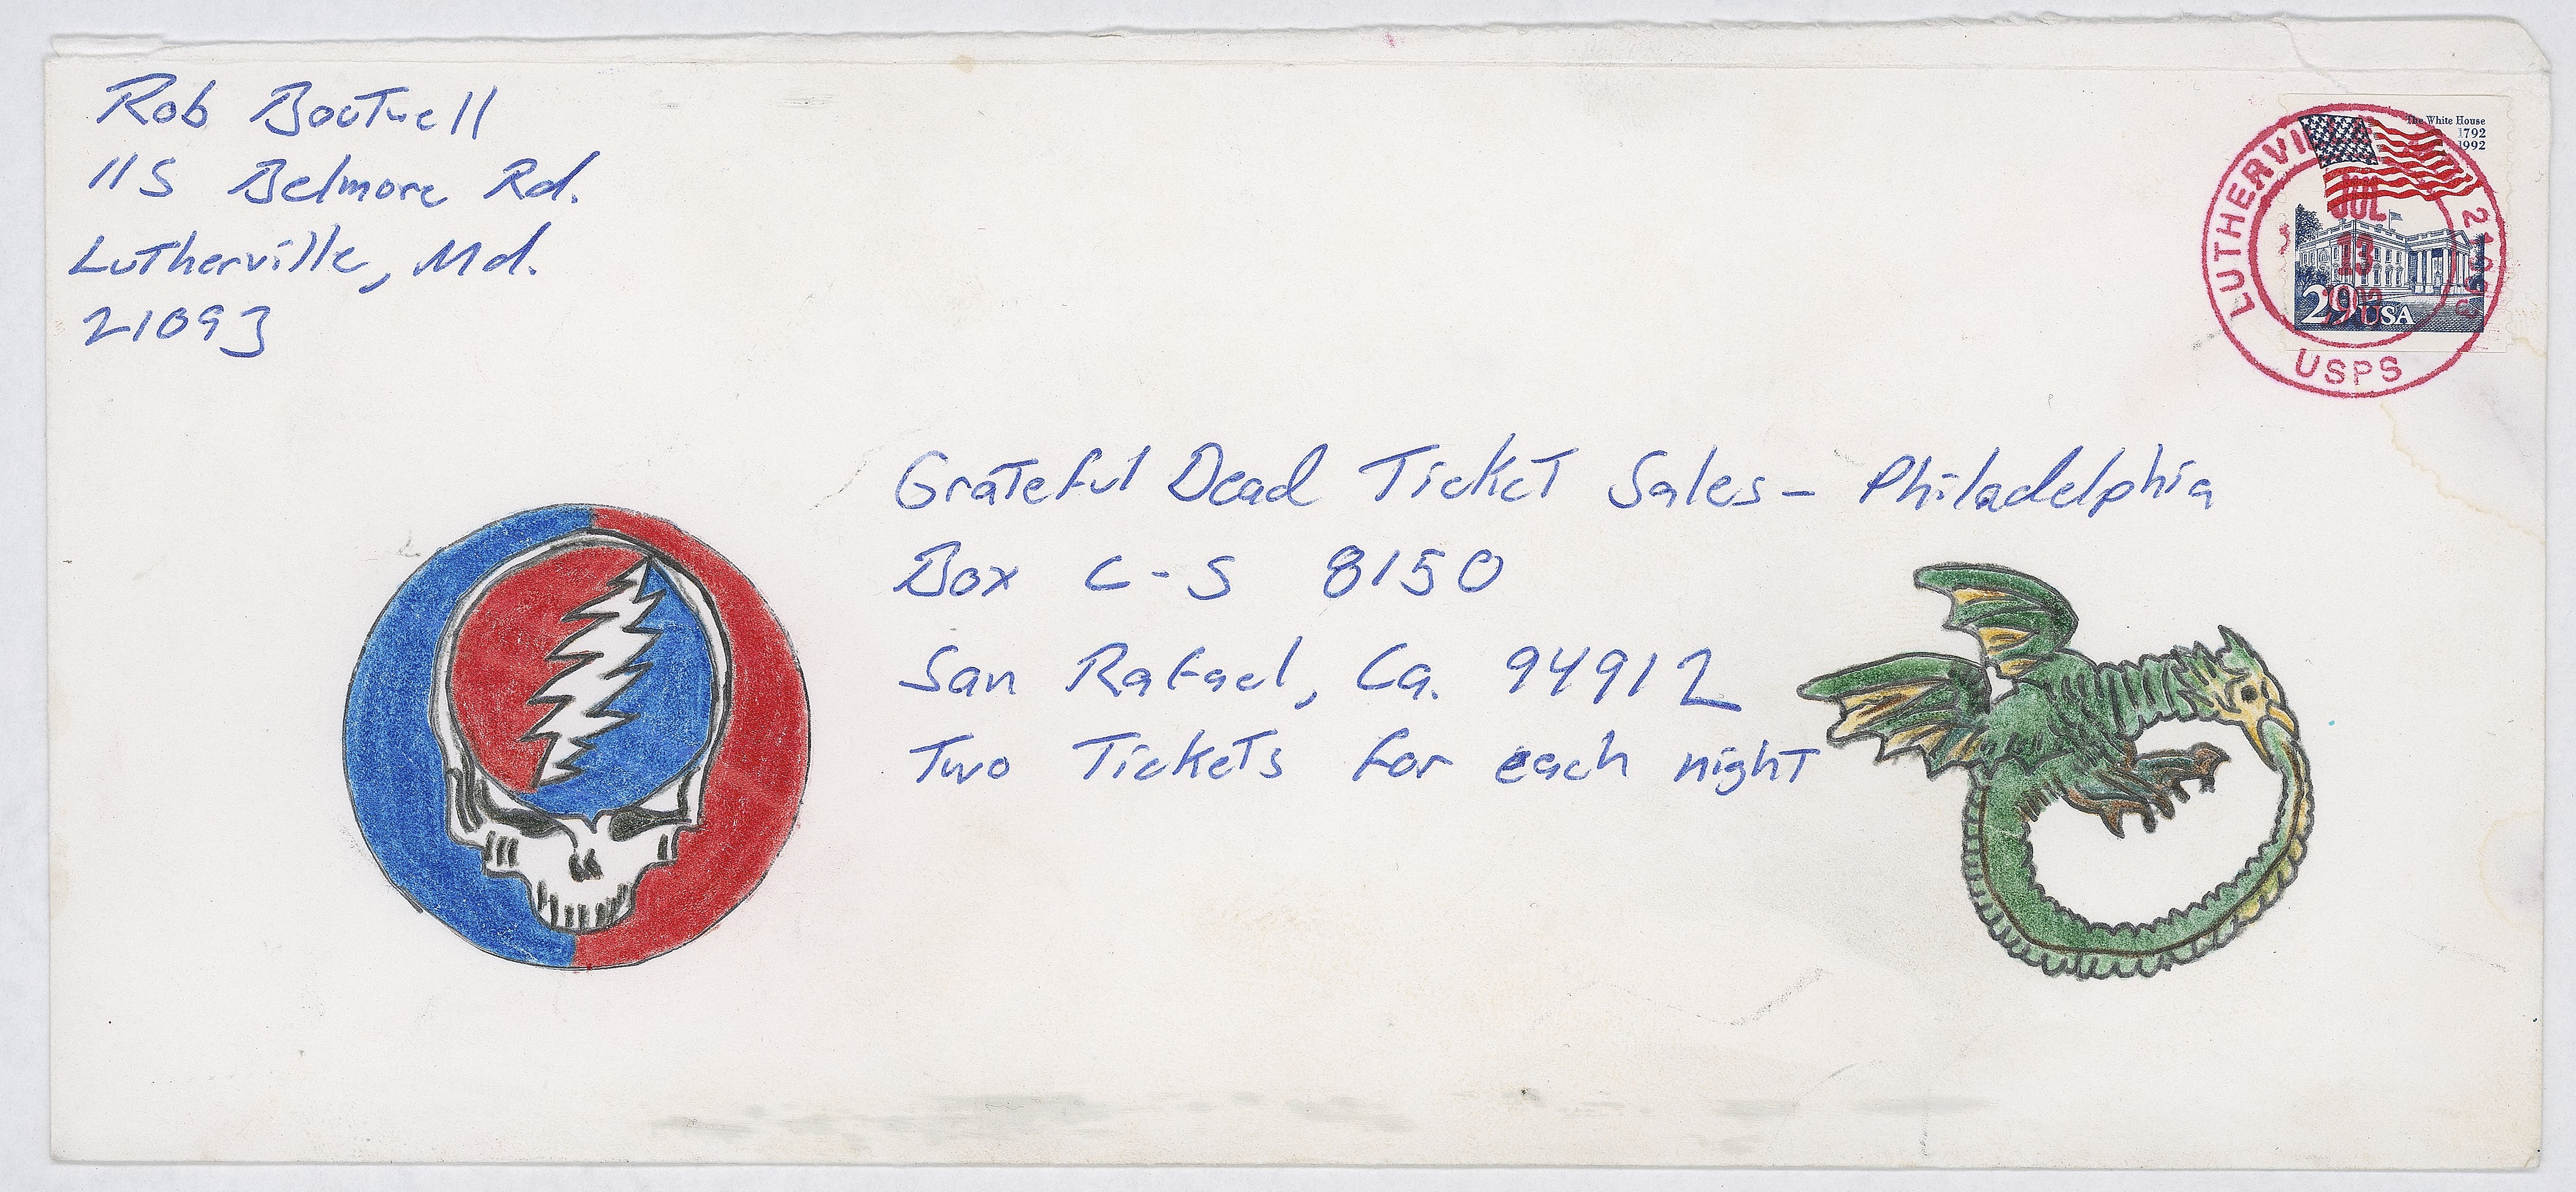 Rob Boutwell
115 Belmore Rd.
Lutherville, Md.
21093
The White House
1792
1992
29 USA
JUL
13
USPS
Grateful Dead Ticket Sales - Philadelphia
Box C-S 8150
San Rafael, Ca. 94912
Two Tickets for each night